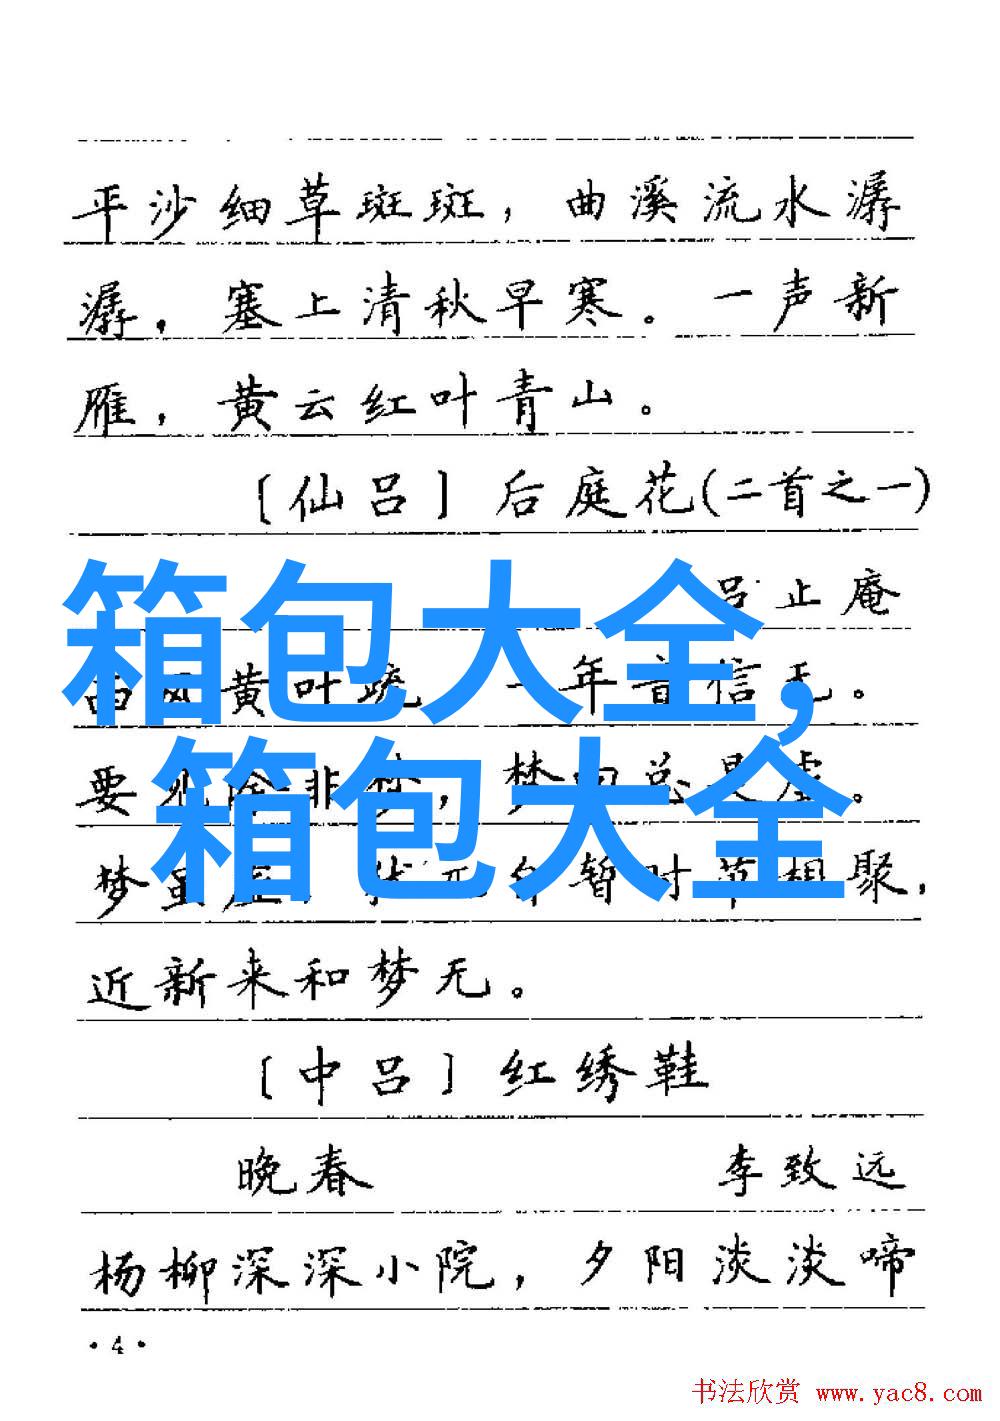 平沙细草斑斑，曲溪流水潺
潺，塞上清秋早寒。一声新
雁，黄云红叶青山。
〔仙吕〕后庭花(二首之一)
吕止庵
箱包大全,
西风黄叶疏 一年音信无。
要见除非梦，梦回总是虚。
箱包大全
梦虽虚，犹兀自暂时节相聚，
近新来和梦无。
〔中吕〕红绣鞋
晚春 李致远
杨柳深深小院，夕阳淡淡啼
·4·
书法欣赏 www.yac8.com